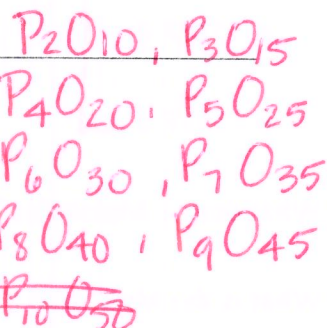 P2O10, P3O15
P4O20, P5O25
P6O30, P7O35
P8O40, P9O45
P10O50